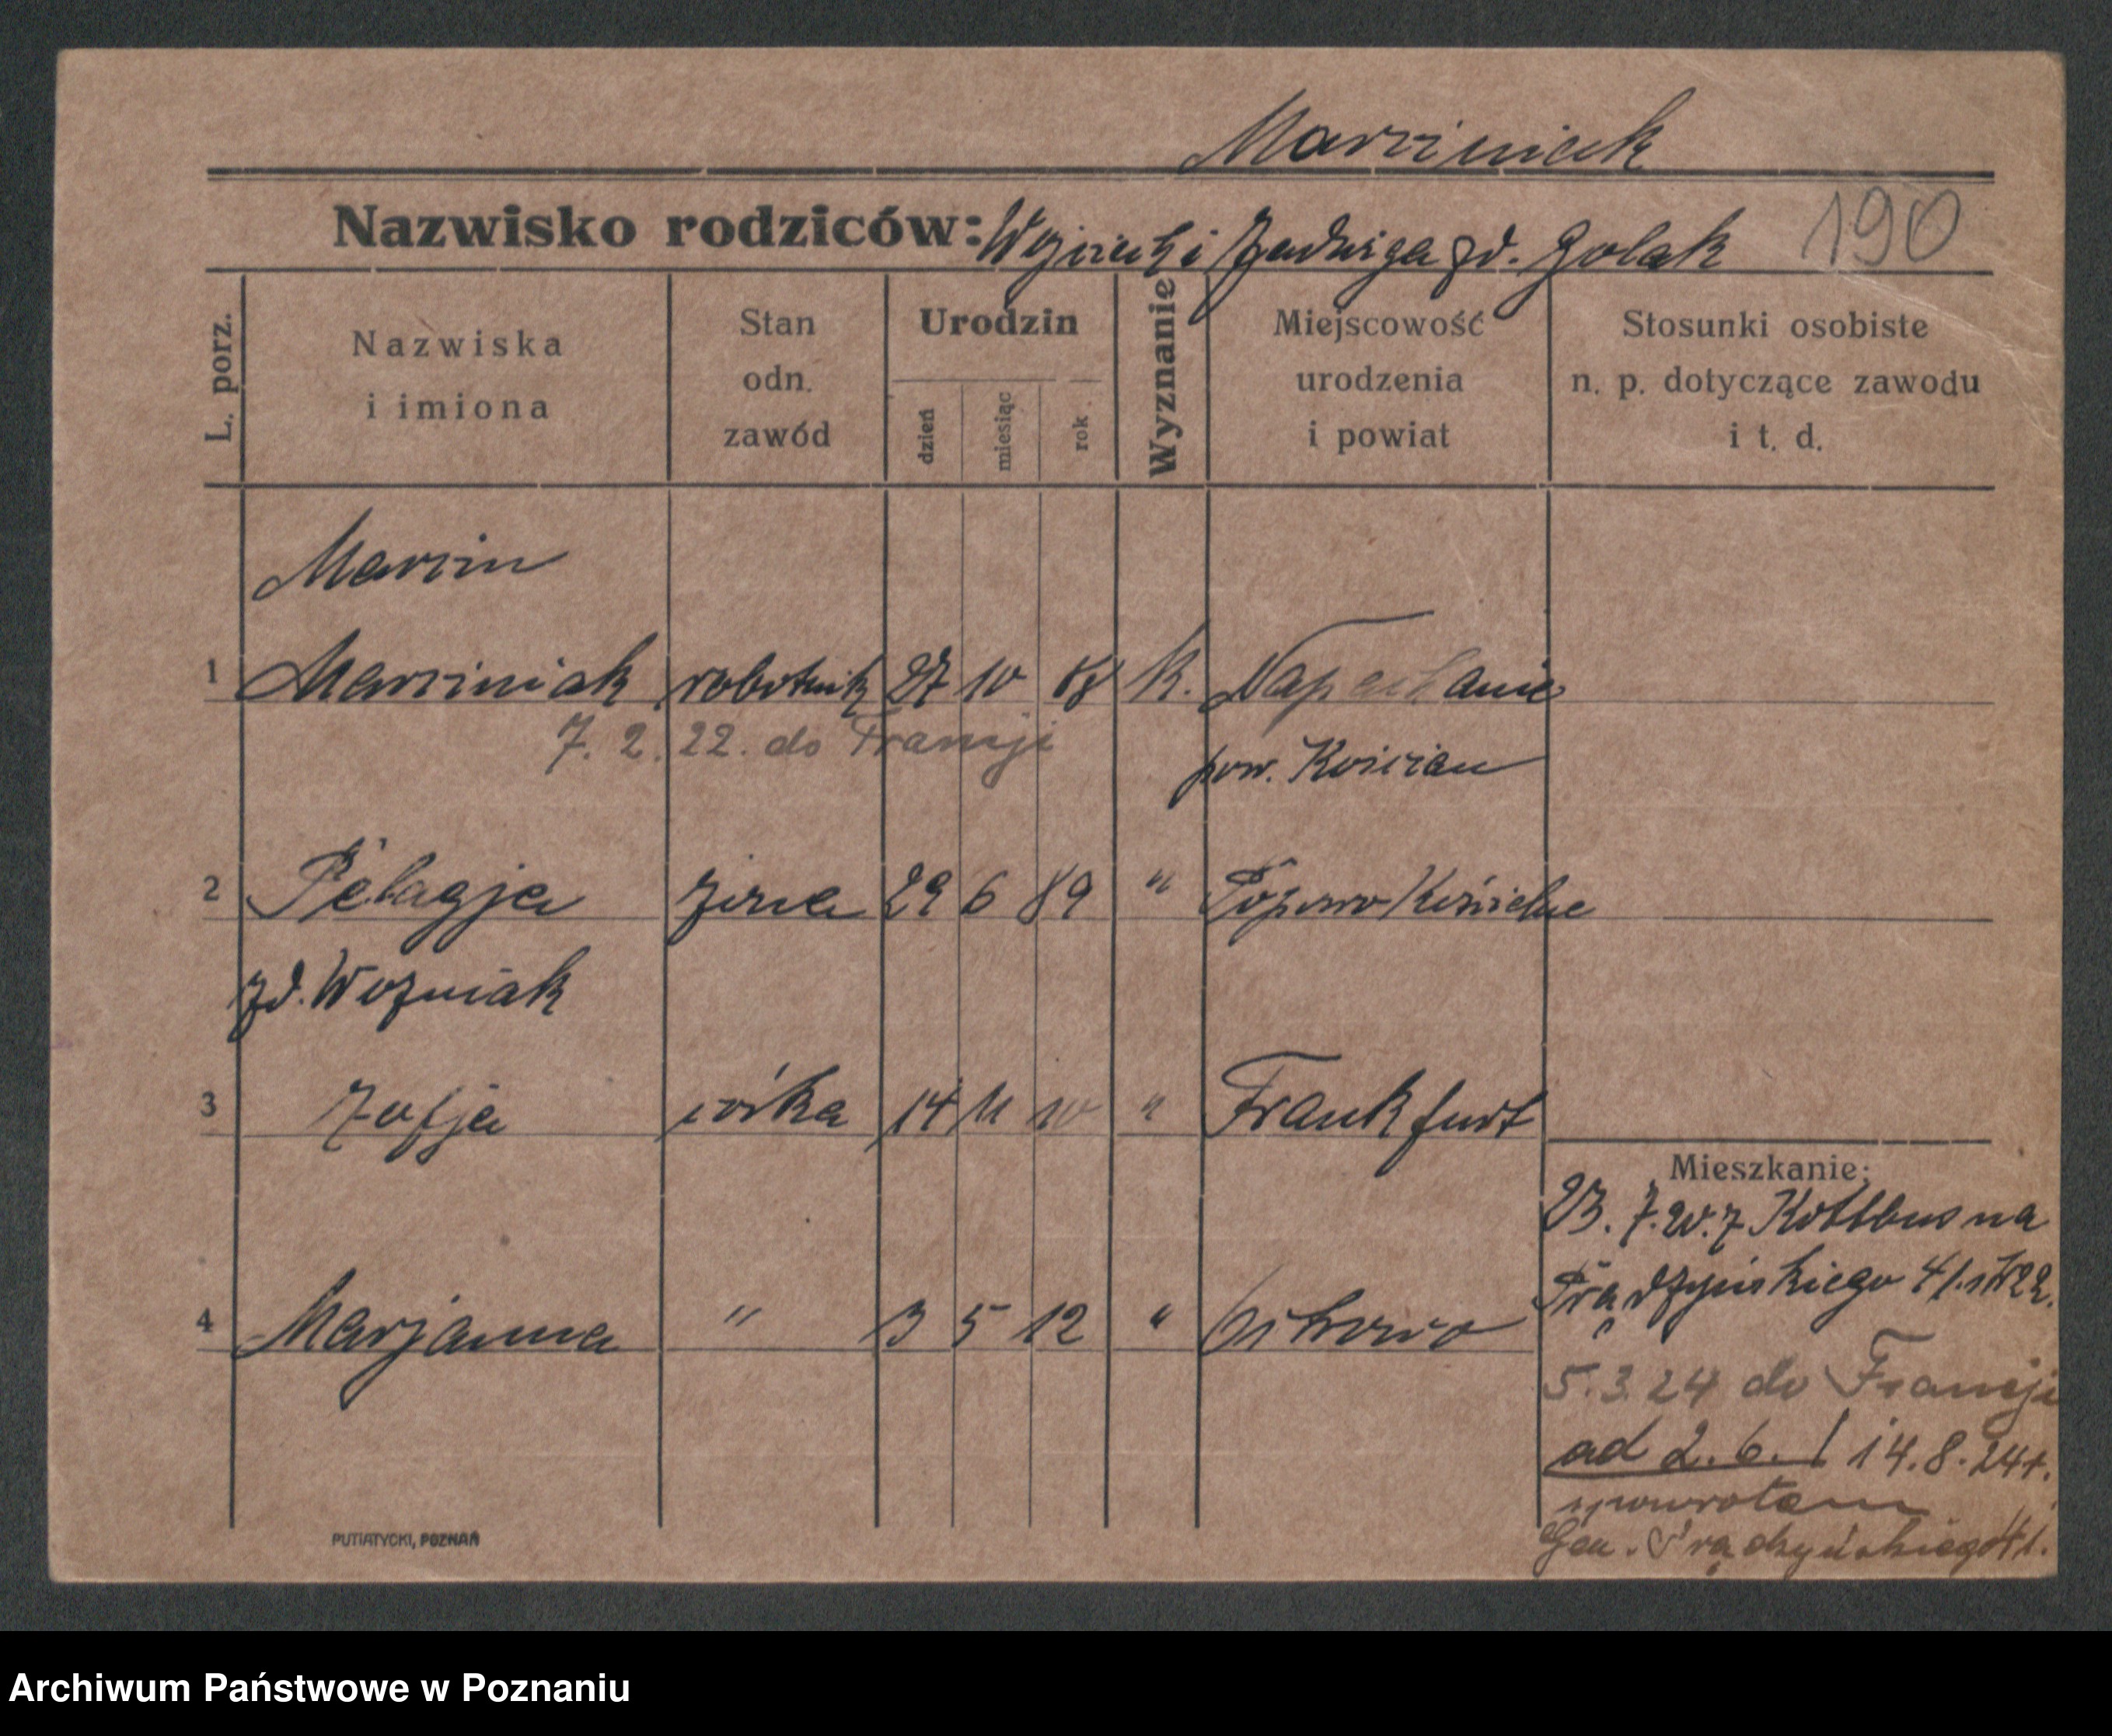 Marciniak
Nazwisko rodziców: Wojciech i Jadwiga zd. Golak 190
L. porz. Nazwiska i imiona Stan odn. zawód Urodzin dzień miesiąc rok Wyznanie Miejscowość urodzenia i powiat Stosunki osobiste n. p. dotyczące zawodu i t. d.
Marcin
1 Marciniak robotnik 27 10 88 k.
7. 2. 22. do Francji
pow. Kościan
2 Pelagja żona 29 6 89 " Popowo Kościelne
zd. Wozniak
3 Zofja córka 14 11 10 " Frankfurt
Mieszkanie:
23. 7. 20. z Kottbus na
Prądzyńskiego 41.
4 Marjanna " 3 5 12 "
5. 3. 24 do Francji
ad 2. 6. / 14. 8. 24 r.
spowrotem
Gen. Prądzyńskiego 41.
PUTIATYCKI, POZNAŃ
Archiwum Państwowe w Poznaniu